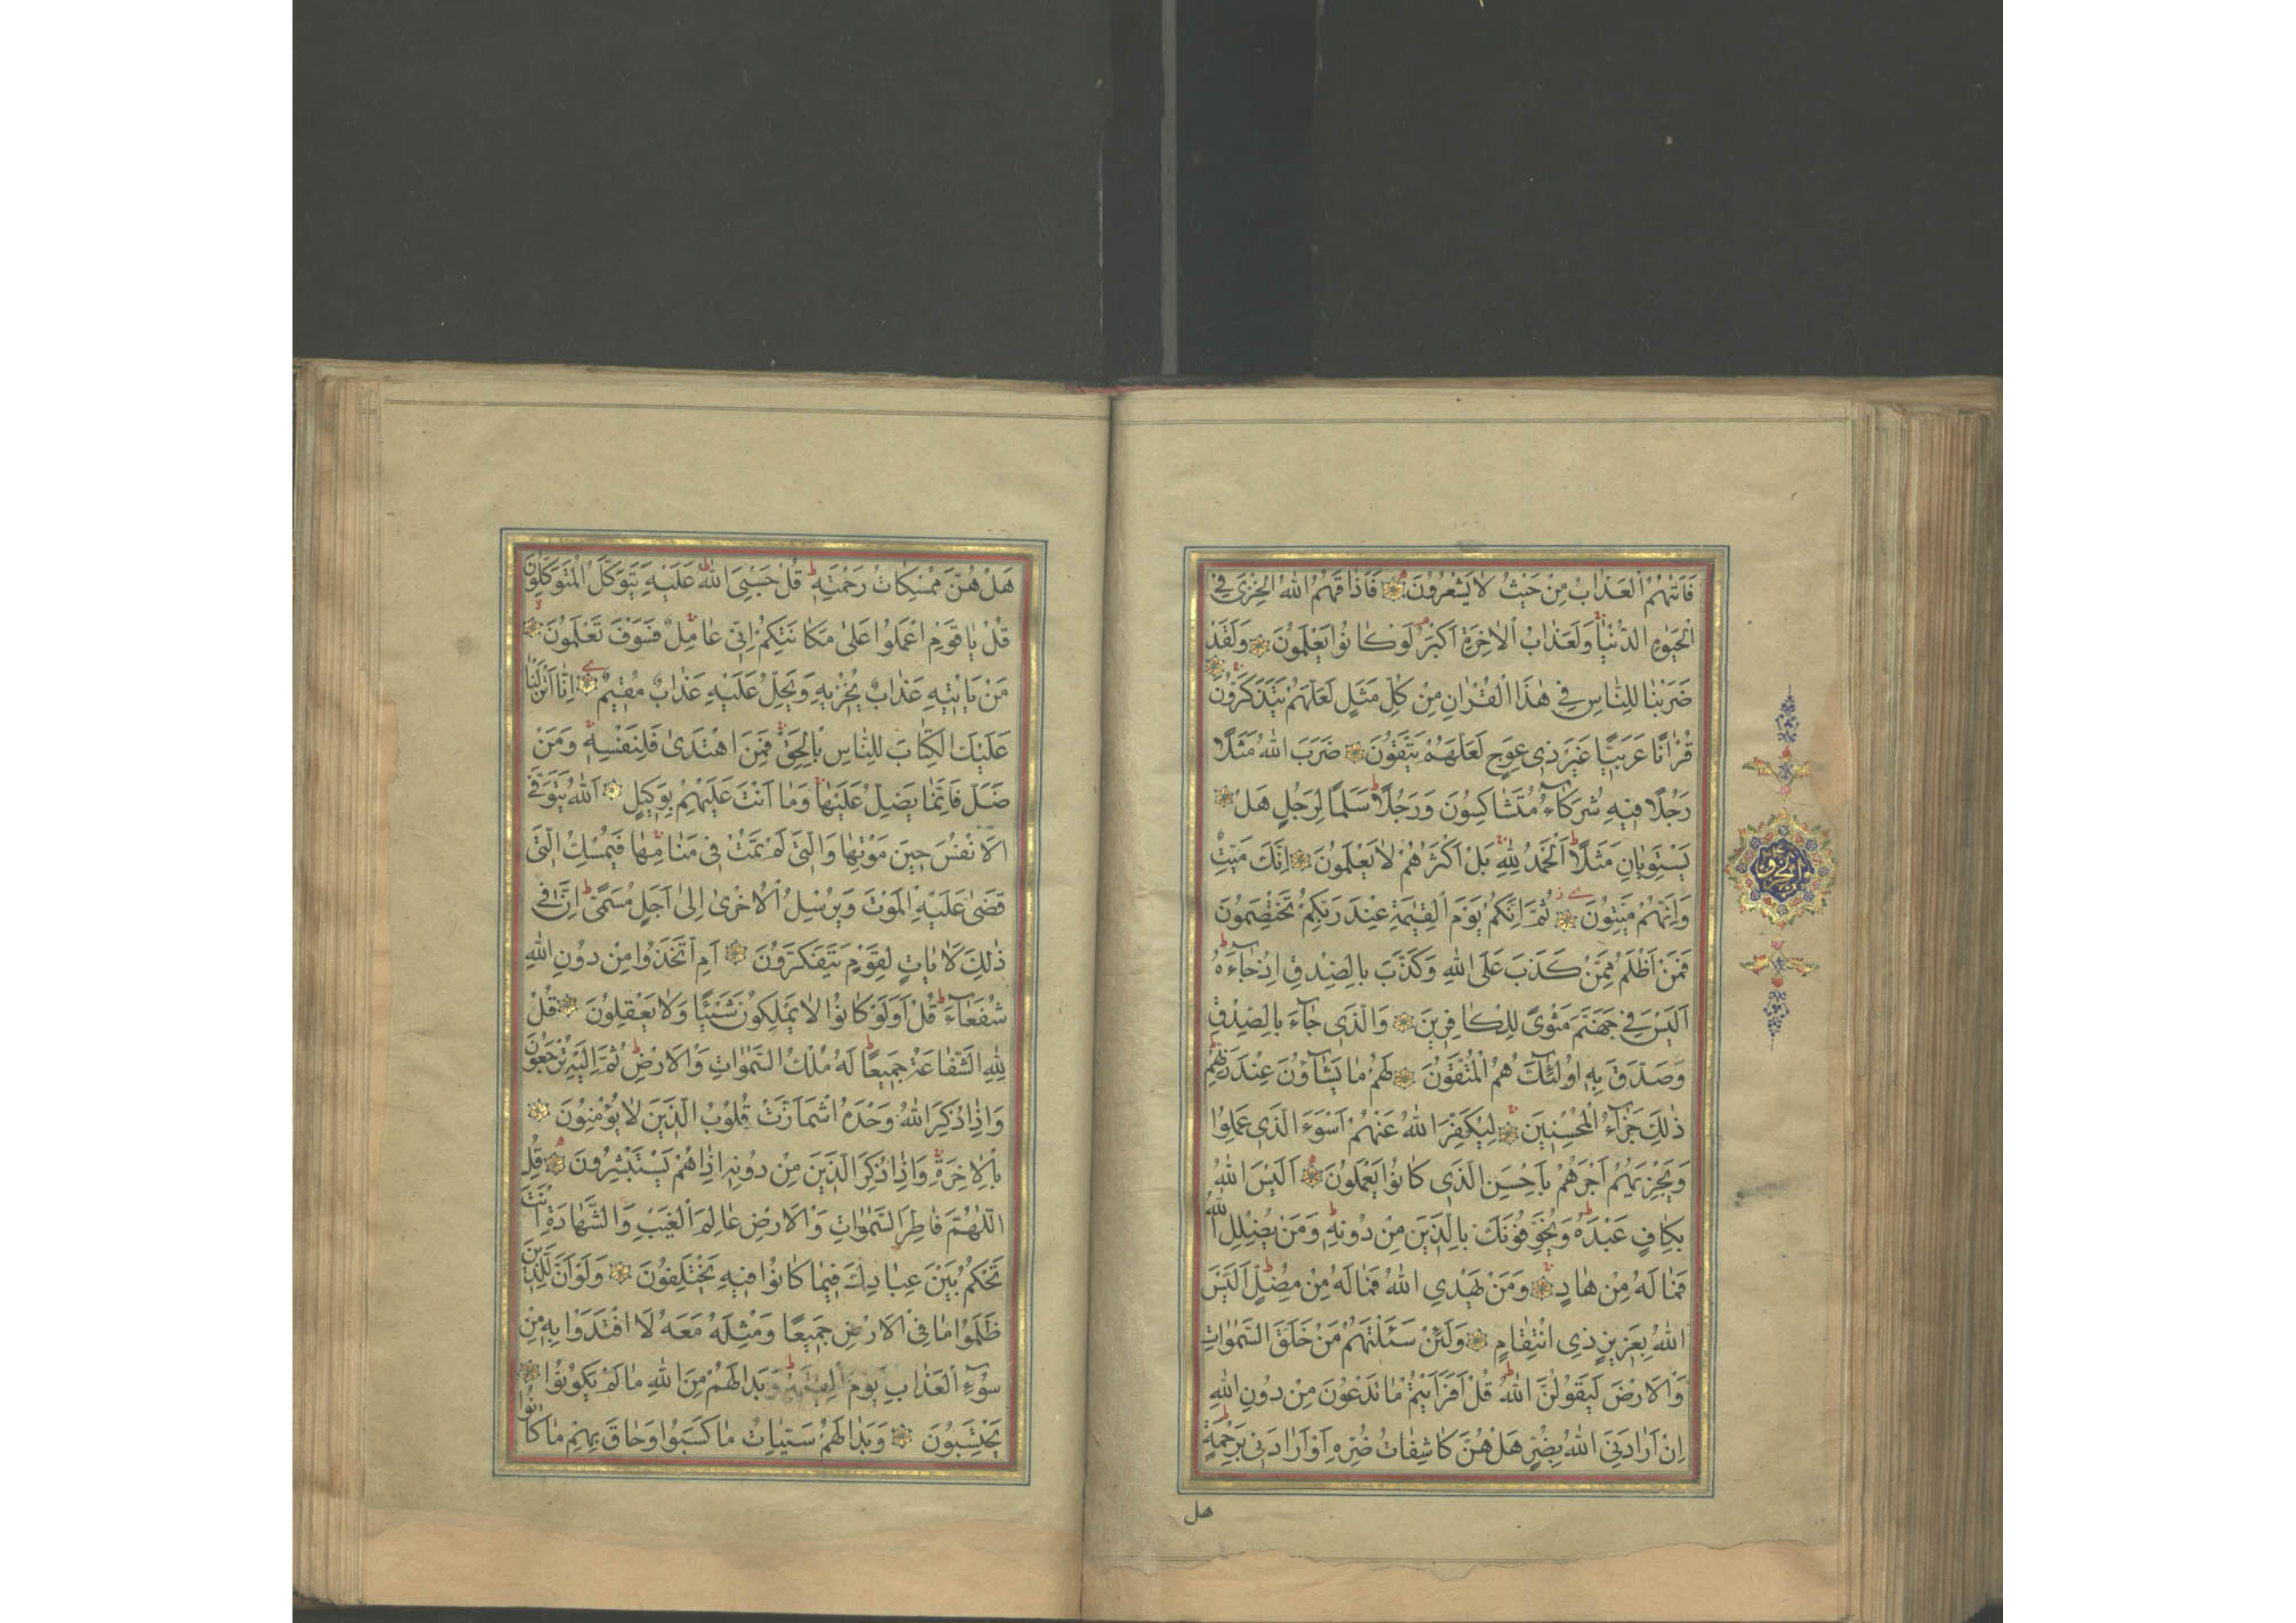 فَاَتٰیهُمُ الْعَذَابُ مِنْ حَیْثُ لَا یَشْعُرُونَ فَاَذَاقَهُمُ اللهُ الْخِزْیَ فِی
الْحَیٰوةِ الدُّنْیَا وَلَعَذَابُ الْاٰخِرَةِ اَكْبَرُ لَوْ كَانُوا یَعْلَمُونَ وَلَقَدْ
ضَرَبْنَا لِلنَّاسِ فِی هٰذَا الْقُرْاٰنِ مِنْ كُلِّ مَثَلٍ لَعَلَّهُمْ یَتَذَكَّرُونَ
قُرْاٰنًا عَرَبِیًّا غَیْرَ ذِی عِوَجٍ لَعَلَّهُمْ یَتَّقُونَ ضَرَبَ اللهُ مَثَلًا
رَجُلًا فِیهِ شُرَكَآءُ مُتَشَاكِسُونَ وَرَجُلًا سَلَمًا لِرَجُلٍ هَلْ
یَسْتَوِیَانِ مَثَلًا اَلْحَمْدُ لِلّٰهِ بَلْ اَكْثَرُهُمْ لَا یَعْلَمُونَ اِنَّكَ مَیِّتٌ
وَاِنَّهُمْ مَیِّتُونَ ثُمَّ اِنَّكُمْ یَوْمَ الْقِیٰمَةِ عِنْدَ رَبِّكُمْ تَخْتَصِمُونَ
فَمَنْ اَظْلَمُ مِمَّنْ كَذَبَ عَلَی اللهِ وَكَذَّبَ بِالصِّدْقِ اِذْ جَآءَهُ
اَلَیْسَ فِی جَهَنَّمَ مَثْوًی لِلْكَافِرِینَ وَالَّذِی جَآءَ بِالصِّدْقِ
وَصَدَّقَ بِهِ اُولٰٓئِكَ هُمُ الْمُتَّقُونَ لَهُمْ مَا یَشَآؤُنَ عِنْدَ رَبِّهِمْ
ذٰلِكَ جَزَآءُ الْمُحْسِنِینَ لِیُكَفِّرَ اللهُ عَنْهُمْ اَسْوَءَ الَّذِی عَمِلُوا
وَیَجْزِیَهُمْ اَجْرَهُمْ بِاَحْسَنِ الَّذِی كَانُوا یَعْمَلُونَ اَلَیْسَ اللهُ
بِكَافٍ عَبْدَهُ وَیُخَوِّفُونَكَ بِالَّذِینَ مِنْ دُونِهِ وَمَنْ یُضْلِلِ اللهُ
فَمَا لَهُ مِنْ هَادٍ وَمَنْ یَهْدِی اللهُ فَمَا لَهُ مِنْ مُضِلٍّ اَلَیْسَ
اللهُ بِعَزِیزٍ ذِی انْتِقَامٍ وَلَئِنْ سَئَلْتَهُمْ مَنْ خَلَقَ السَّمٰوَاتِ
وَالْاَرْضَ لَیَقُولُنَّ اللهُ قُلْ اَفَرَاَیْتُمْ مَا تَدْعُونَ مِنْ دُونِ اللهِ
اِنْ اَرَادَنِیَ اللهُ بِضُرٍّ هَلْ هُنَّ كَاشِفَاتُ ضُرِّهِ اَوْ اَرَادَنِی بِرَحْمَةٍ
هل
هَلْ هُنَّ مُمْسِكَاتُ رَحْمَتِهِ قُلْ حَسْبِیَ اللهُ عَلَیْهِ یَتَوَكَّلُ الْمُتَوَكِّلُونَ
قُلْ یَا قَوْمِ اعْمَلُوا عَلٰی مَكَانَتِكُمْ اِنِّی عَامِلٌ فَسَوْفَ تَعْلَمُونَ
مَنْ یَاْتِیهِ عَذَابٌ یُخْزِیهِ وَیَحِلُّ عَلَیْهِ عَذَابٌ مُقِیمٌ اِنَّا اَنْزَلْنَا
عَلَیْكَ الْكِتَابَ لِلنَّاسِ بِالْحَقِّ فَمَنِ اهْتَدٰی فَلِنَفْسِهِ وَمَنْ
ضَلَّ فَاِنَّمَا یَضِلُّ عَلَیْهَا وَمَا اَنْتَ عَلَیْهِمْ بِوَكِیلٍ اَللهُ یَتَوَفَّی
الْاَنْفُسَ حِینَ مَوْتِهَا وَالَّتِی لَمْ تَمُتْ فِی مَنَامِهَا فَیُمْسِكُ الَّتِی
قَضٰی عَلَیْهَا الْمَوْتَ وَیُرْسِلُ الْاُخْرٰی اِلٰی اَجَلٍ مُسَمًّی اِنَّ فِی
ذٰلِكَ لَاٰیَاتٍ لِقَوْمٍ یَتَفَكَّرُونَ اَمِ اتَّخَذُوا مِنْ دُونِ اللهِ
شُفَعَآءَ قُلْ اَوَلَوْ كَانُوا لَا یَمْلِكُونَ شَیْئًا وَلَا یَعْقِلُونَ قُلْ
لِلّٰهِ الشَّفَاعَةُ جَمِیعًا لَهُ مُلْكُ السَّمٰوَاتِ وَالْاَرْضِ ثُمَّ اِلَیْهِ تُرْجَعُونَ
وَاِذَا ذُكِرَ اللهُ وَحْدَهُ اشْمَاَزَّتْ قُلُوبُ الَّذِینَ لَا یُؤْمِنُونَ
بِالْاٰخِرَةِ وَاِذَا ذُكِرَ الَّذِینَ مِنْ دُونِهِ اِذَا هُمْ یَسْتَبْشِرُونَ قُلِ
اللّٰهُمَّ فَاطِرَ السَّمٰوَاتِ وَالْاَرْضِ عَالِمَ الْغَیْبِ وَالشَّهَادَةِ اَنْتَ
تَحْكُمُ بَیْنَ عِبَادِكَ فِیمَا كَانُوا فِیهِ یَخْتَلِفُونَ وَلَوْ اَنَّ لِلَّذِینَ
ظَلَمُوا مَا فِی الْاَرْضِ جَمِیعًا وَمِثْلَهُ مَعَهُ لَافْتَدَوْا بِهِ مِنْ
سُوٓءِ الْعَذَابِ یَوْمَ الْقِیٰمَةِ وَبَدَا لَهُمْ مِنَ اللهِ مَا لَمْ یَكُونُوا
یَحْتَسِبُونَ وَبَدَا لَهُمْ سَیِّئَاتُ مَا كَسَبُوا وَحَاقَ بِهِمْ مَا كَانُوا